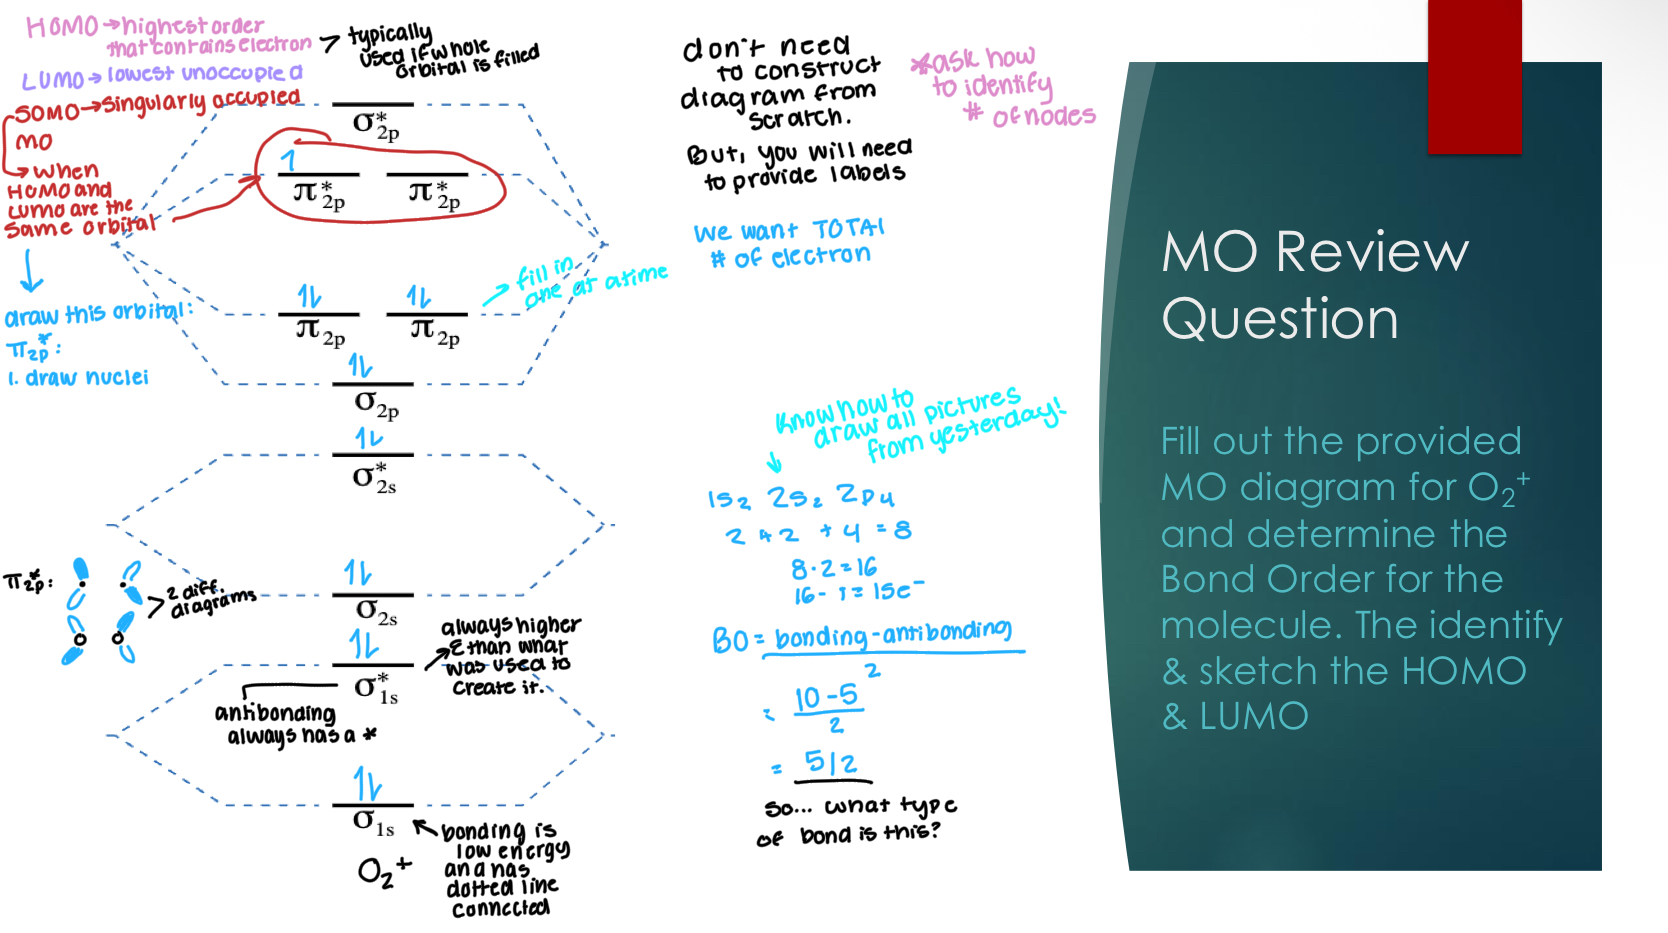 HOMO → highest order
that contains electron
→ typically
used if whole
orbital is filled
LUMO → lowest unoccupied
SOMO → singularly occupied
MO
→ when
HOMO and
LUMO are the
same orbital
draw this orbital:
π2p*:
1. draw nuclei
σ*2p
1
π*2p π*2p
1L 1L
π2p π2p
→ fill in
one at a time
1L
σ2p
1L
σ*2s
1L
σ2s
1L
σ*1s
1L
σ1s
O2+
π2p*:
2 diff.
diagrams
always higher
E than what
was used to
create it.
antibonding
always has a *
bonding is
low energy
and has
dotted line
connected
don't need
to construct
diagram from
scratch.
But, you will need
to provide labels
*ask how
to identify
# of nodes
We want TOTAL
# of electron
Know how to
draw all pictures
from yesterday!
1s2 2s2 2p4
2 + 2 + 4 = 8
8·2=16
16-1=15e-
BO = bonding-antibonding
2
= 10-5
2
= 5/2
So... what type
of bond is this?
MO Review
Question
Fill out the provided
MO diagram for O2+
and determine the
Bond Order for the
molecule. The identify
& sketch the HOMO
& LUMO